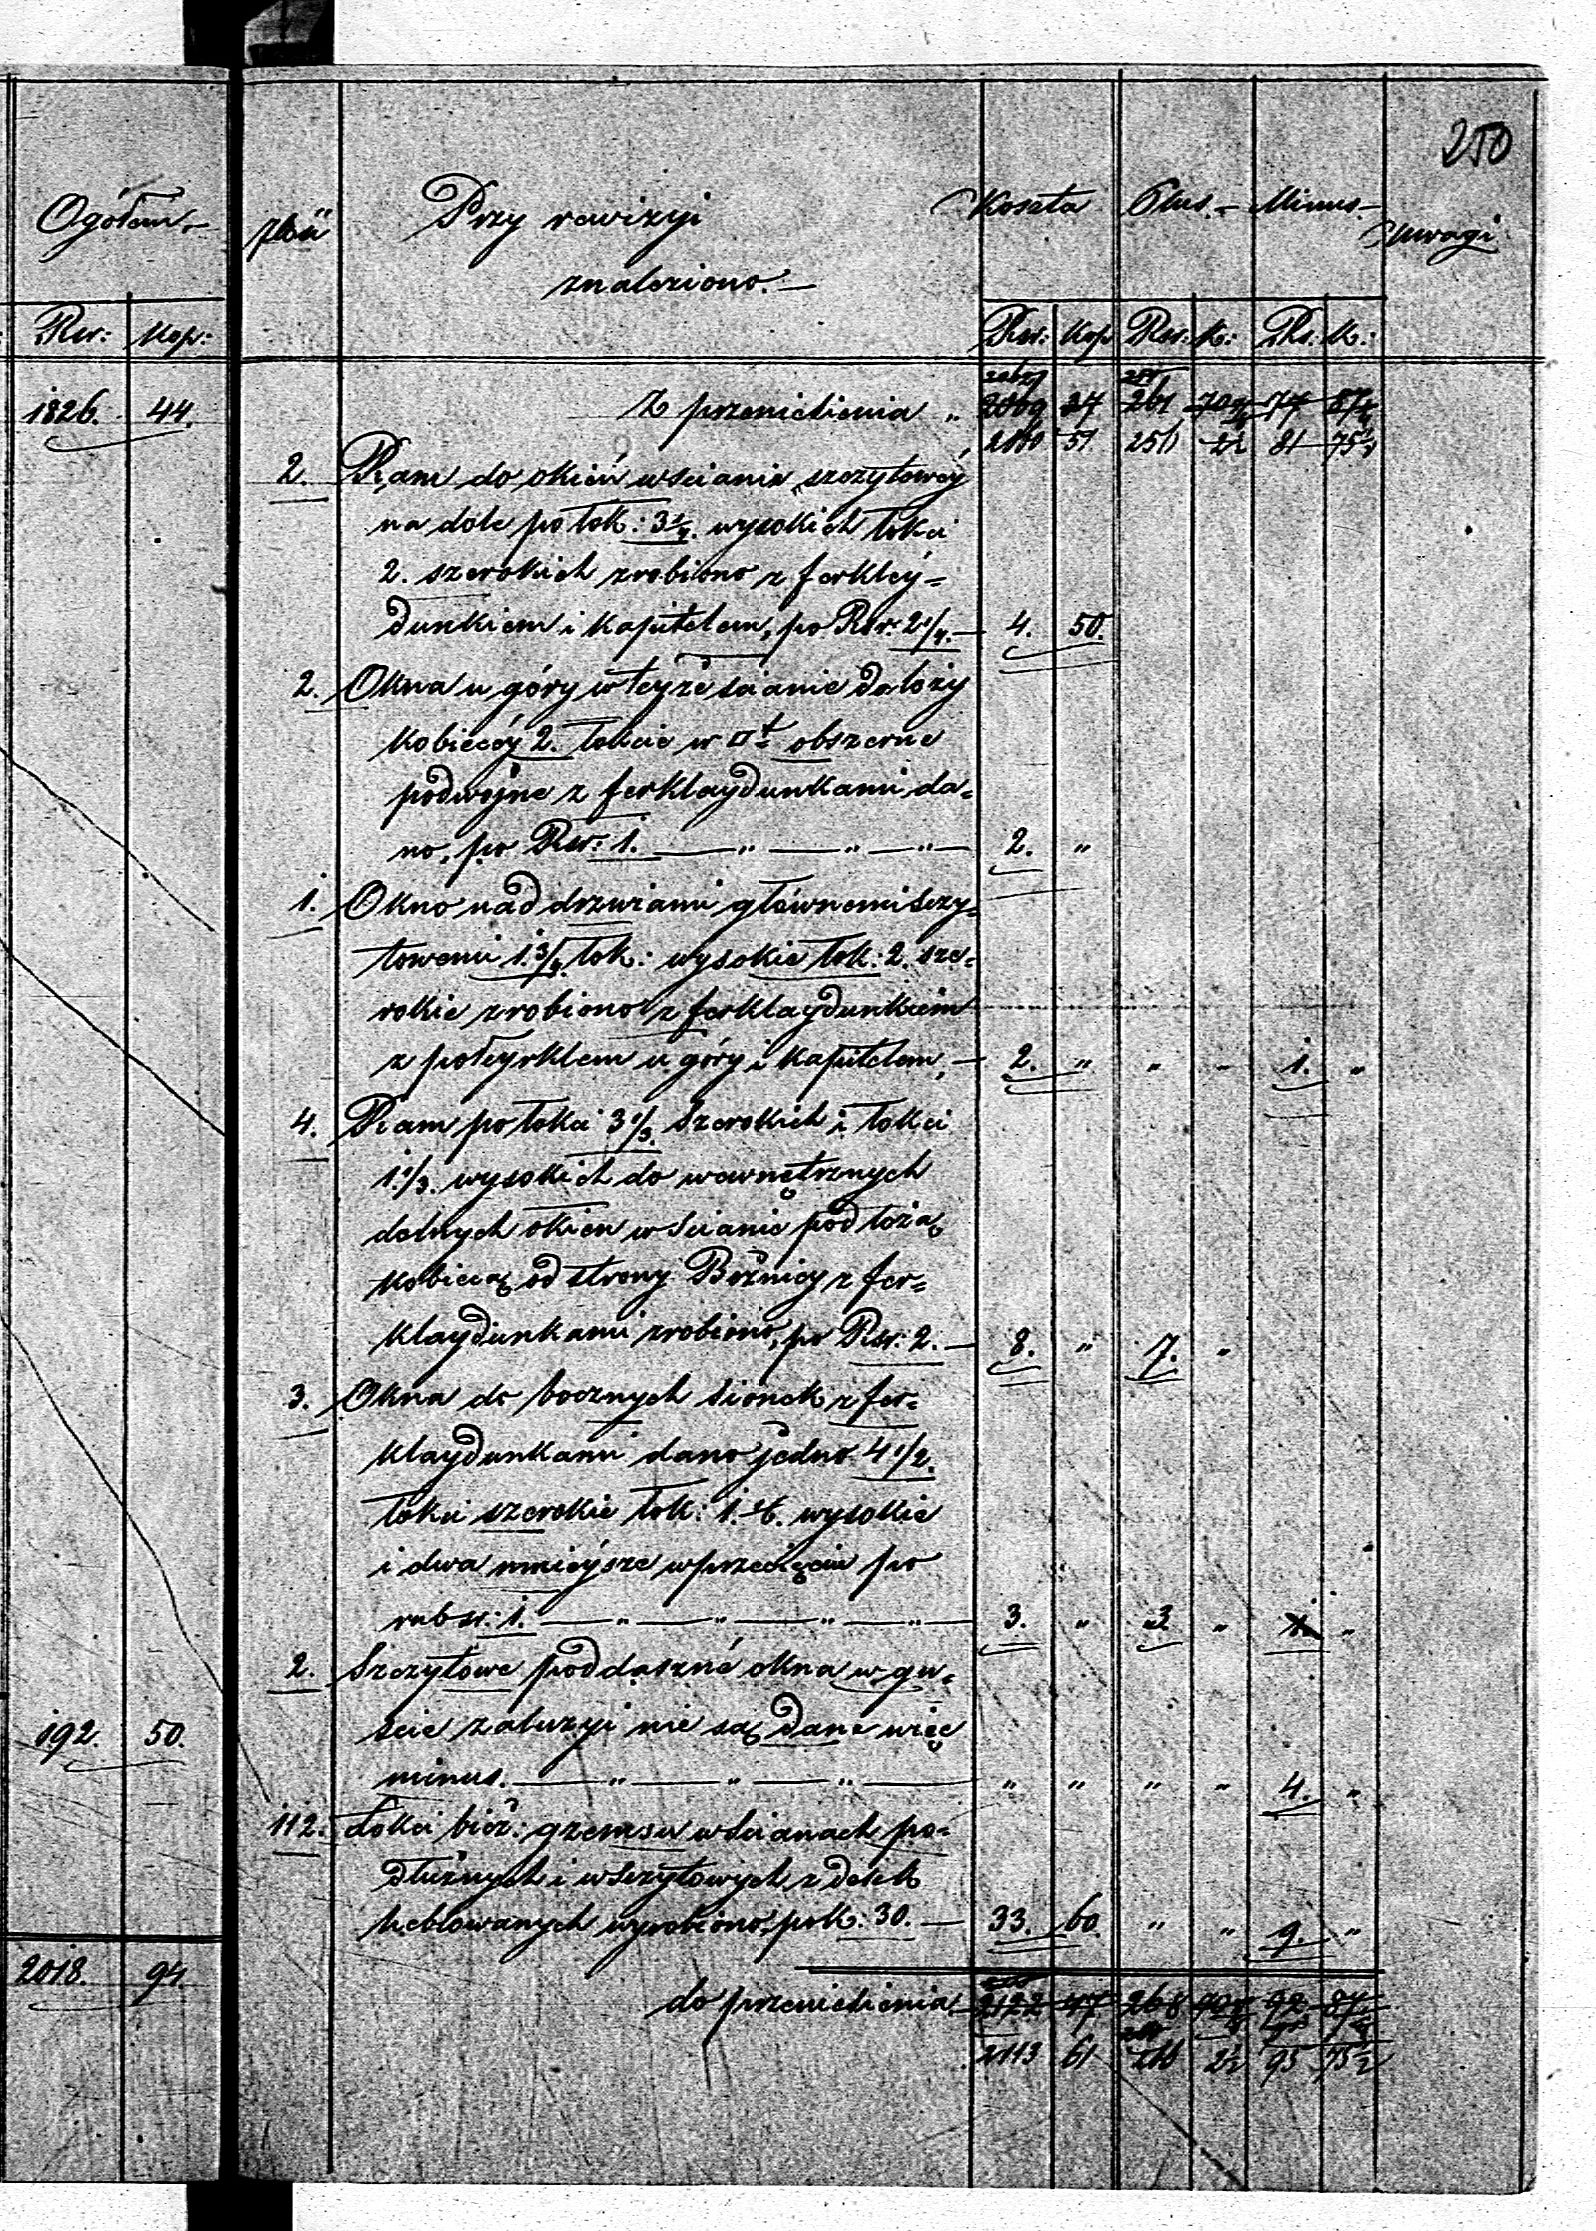 250
Ogółem.
Rsr: Kop:
1826. 44.
192. 50.
2018. 94.
Przy rewizyi Koszta Plus. Minus. Uwagi
znaleziono.
Rsr: Kop Rsr: K: Rs: K:
Z przeniesienia „
51 81
2. Ram do okień w scianie szczytowéy
na dole po łok: 3¼. wysokich łokci
2. szerokich zrobiono z ferkley=
dunkiem i kapitelem, po Rsr. 2¼. — 4. 50.
2. Okna u góry w teyże scianie do łoży
kobiecéy 2. łokcie w □t obszerne
podwóyne z ferklaydunkami da=
no, po Rsr: 1. — „ — „ — „ — 2. „
1. Okno nad drzwiami głównemi szczy=
towemi 1.¾ łok: wysokie łok: 2. sze=
rokie zrobiono z ferklaydunkiem
z półcyrklem u góry i kapitelem, — 2. „ „ „ 1. „
4. Ram po łokci 3⅓. szerokich i łokci
1.⅓. wysokich do wewnętrznych
dolnych okien w scianie pod łożą
kobiecą od strony Bóżnicy z fer=
klaydunkami zrobiono, po Rsr: 2. — 8. „ 7. „
3. Okna do bocznych sionek z fer=
klaydunkami dano jedno 4½.
łokci szerokie łok: wysokie
i dwa mnieysze w przecięciu po
rubsr: 1. — „ — „ — „ — 3. „ 3 „ „
2. Szczytowe poddaszné okna w gu=
scie żaluzyi nie są dane więc
minus. — „ — „ — „ — „ „ „ „ 4. „
112. Łokci bież: gzemsu w scianach po=
dłużnych i w szczytowych z desek
heblowanych wyrobiono, po k: 30. — 33. 60. „ „ 9. „
do przeniesienia 2122 47 268
2113 61 95 75½